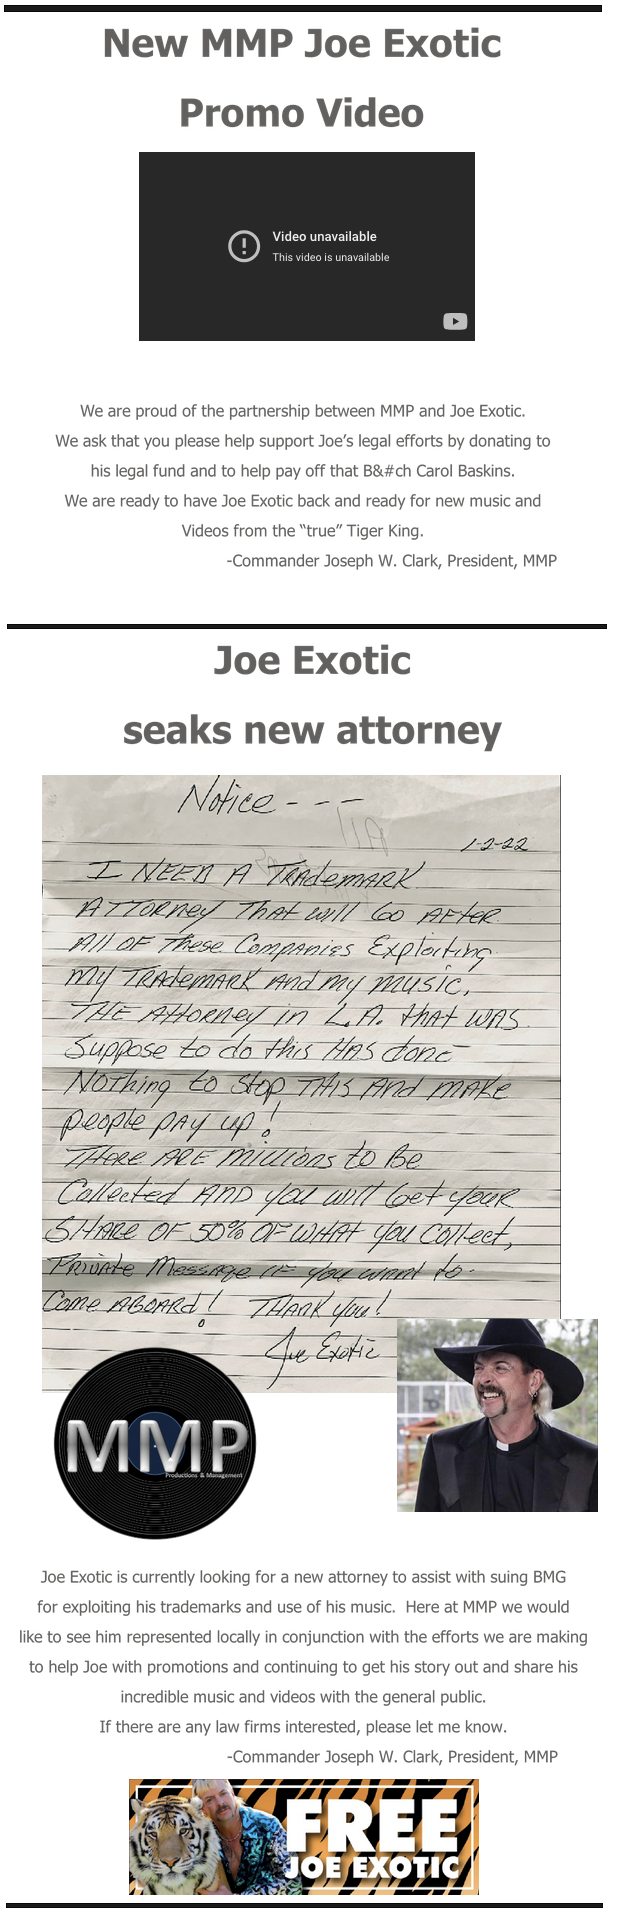 New MMP Joe Exotic
Promo Video
Video unavailable
This video is unavailable
We are proud of the partnership between MMP and Joe Exotic.
We ask that you please help support Joe’s legal efforts by donating to
his legal fund and to help pay off that B&#ch Carol Baskins.
We are ready to have Joe Exotic back and ready for new music and
Videos from the “true” Tiger King.
-Commander Joseph W. Clark, President, MMP
Joe Exotic
seaks new attorney
Notice - - -
1-2-22
I NEED A TRAdemARK
ATTORNey THAT will GO AFTER
All OF These Companies Exploiting
my TRAdemARK And my music,
THE ATTORNey in L.A. tHAT WAS
Suppose to do this HAS done
NOTHing to STOP THIS And mAKe
people pAy up!
THERE ARE millions to Be
Collected AND you will Get your
SHARE OF 50% OF WHAT you Collect,
PRivAte MessAge IF you wAnt to
Come ABOARD! THANK you!
Joe Exotic
MMP
Productions & Management
Joe Exotic is currently looking for a new attorney to assist with suing BMG
for exploiting his trademarks and use of his music.  Here at MMP we would
like to see him represented locally in conjunction with the efforts we are making
to help Joe with promotions and continuing to get his story out and share his
incredible music and videos with the general public.
If there are any law firms interested, please let me know.
-Commander Joseph W. Clark, President, MMP
FREE
JOE EXOTIC